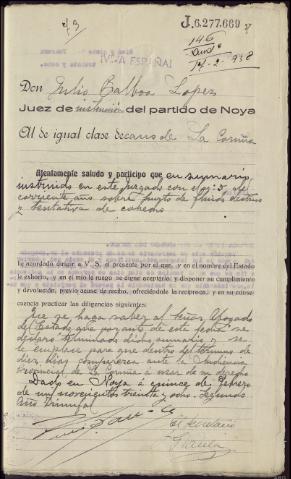 J.6.277.669
¡VIVA ESPAÑA!
146
938
Don Julio Balboa Lopez
Juez de instrucción del partido de Noya
Al de igual clase decano de La Coruña
Atentamente saludo y participo que en sumario
instruido en este juzgado con el nº 5 del
corriente año sobre hurto de fluido eléctrico
y tentativa de cohecho
he acordado dirigir a V. S. el presente por el que, y en el nombre del Estado
le exhorto, y en el mío le ruego se digne aceptarlo y disponer su cumplimiento
y devolución, previo acuse de recibo, ofreciéndole la recíproca, y en su conse-
cuencia practicar las diligencias siguientes:
Que se haga saber al señor Abogado
del Estado que por auto de esta fecha se
declaró terminado dicho sumario y se
le emplace para que dentro del termino de
diez días comparezca ante la Audiencia
provincial de La Coruña a usar de su derecho
Dado en Noya a quince de Febrero
de mil novecientos treinta y ocho. Segundo
Año Triunfal
El Secretario